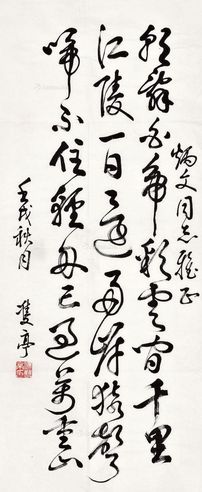 朝辞白帝彩云间千里
江陵一日还两岸猿声
啼不住轻舟已过万重山
炳文同志雅正
壬戌秋月
双亭